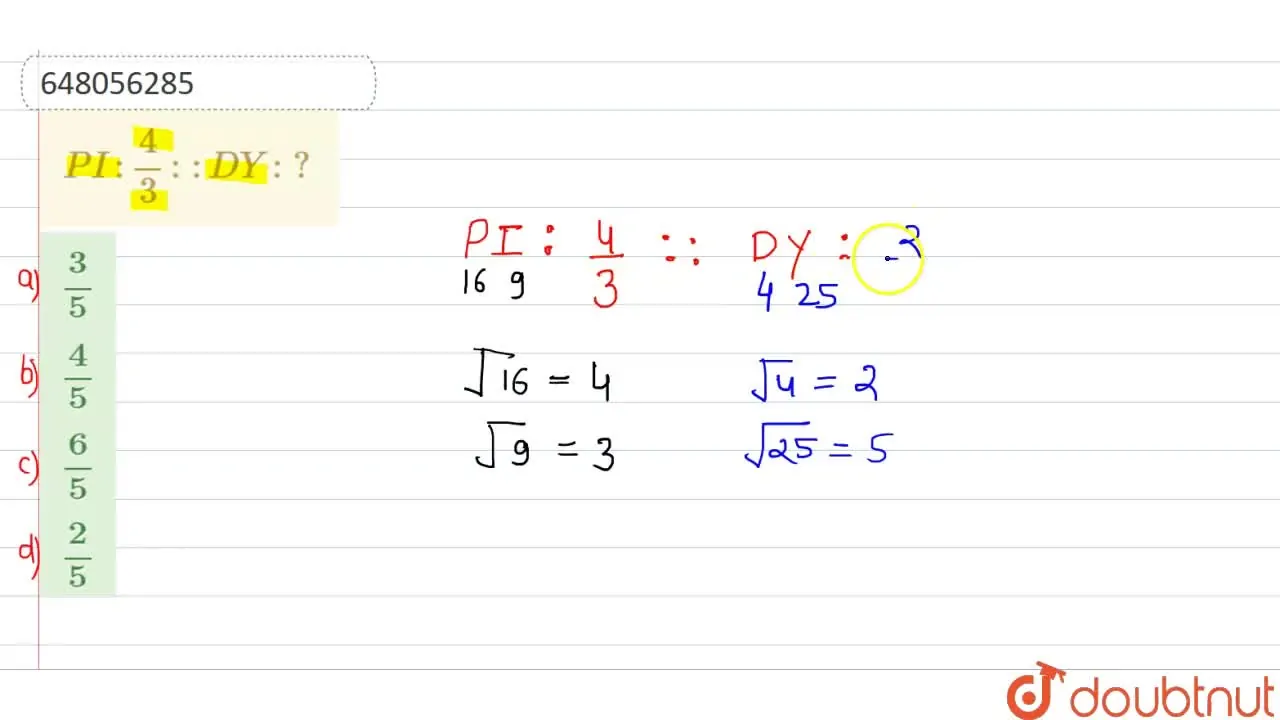 648056285
PI : 4/3 : : DY : ?
a) 3/5
b) 4/5
c) 6/5
d) 2/5
PI : 4/3 :: DY : 2
16 9 4 25
√16 = 4 √4 = 2
√9 = 3 √25 = 5
doubtnut